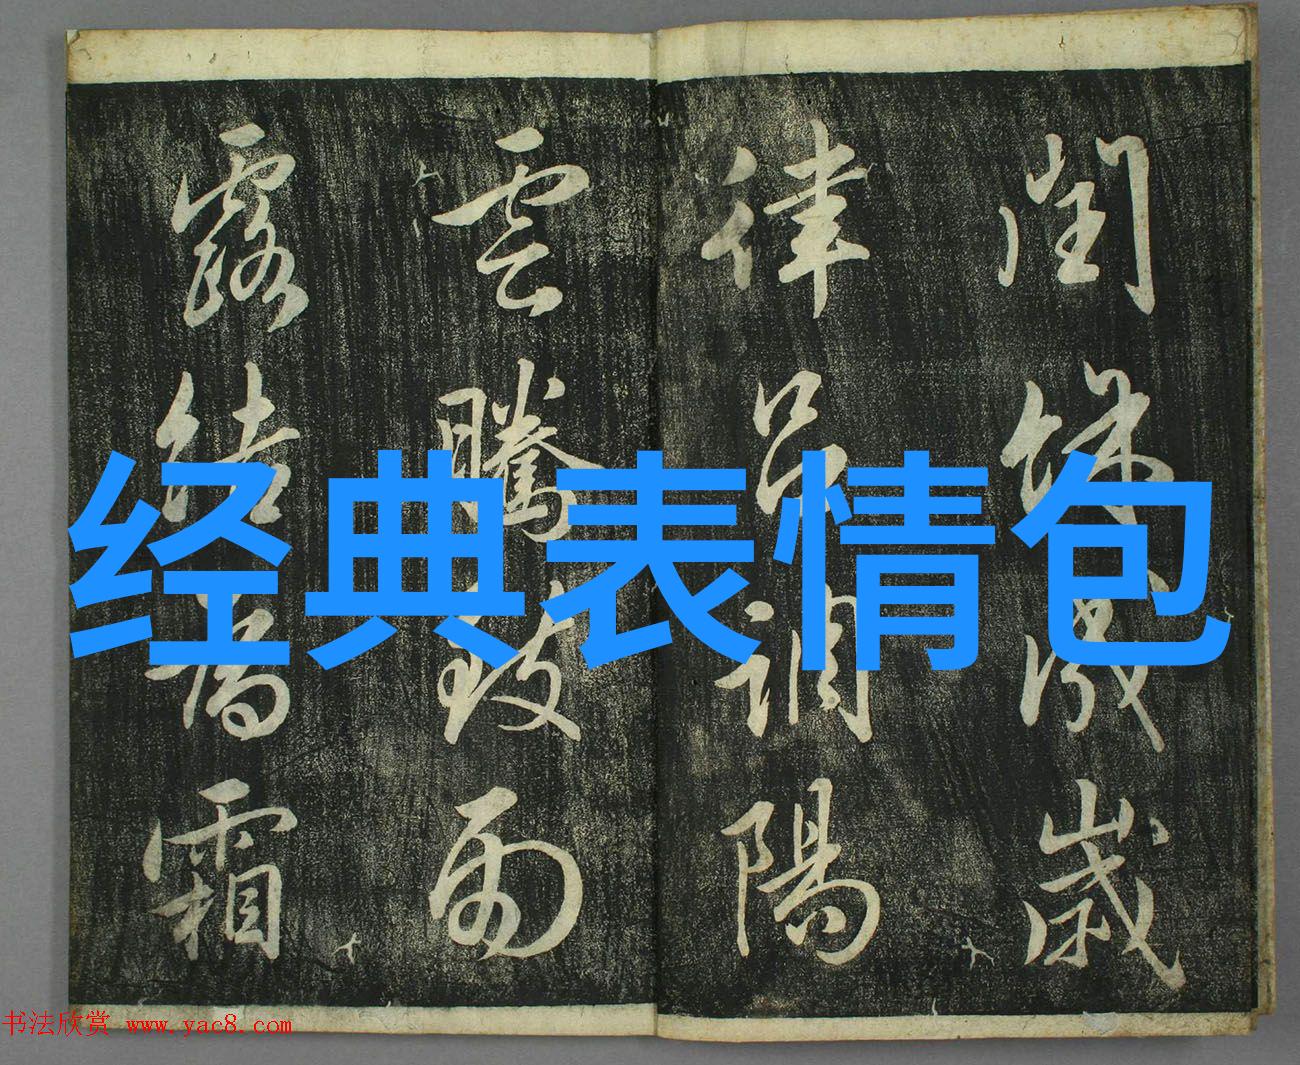 閏餘成歲
律吕調陽
雲騰致雨
露結為霜
经典表情包
书法欣赏 www.yac8.com